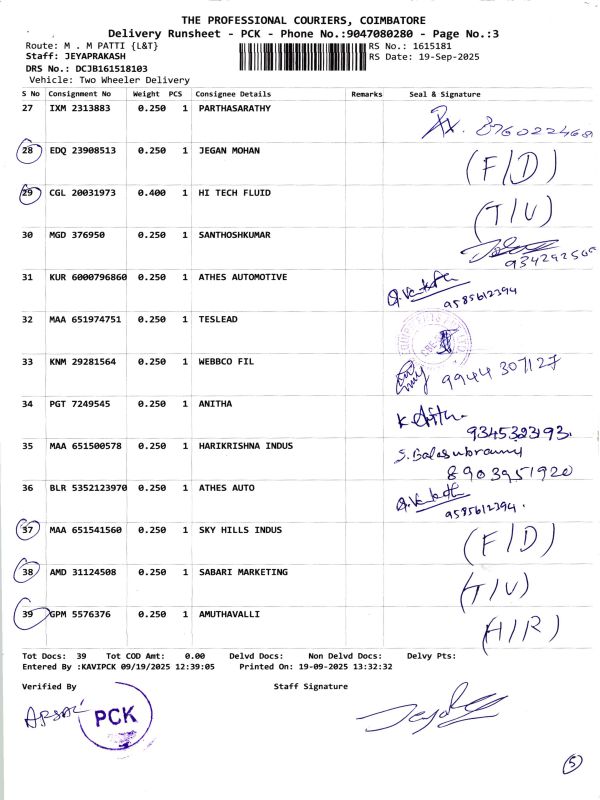 THE PROFESSIONAL COURIERS, COIMBATORE
Delivery Runsheet - PCK - Phone No.:9047080280 - Page No.:3
Route: M . M PATTI {L&T}
RS No.: 1615181
Staff: JEYAPRAKASH
RS Date: 19-Sep-2025
DRS No.: DCJB161518103
Vehicle: Two Wheeler Delivery
S No Consignment No Weight PCS Consignee Details Remarks Seal & Signature
27 IXM 2313883 0.250 1 PARTHASARATHY
876022468
28 EDQ 23908513 0.250 1 JEGAN MOHAN (F/D)
29 CGL 20031973 0.400 1 HI TECH FLUID (T/V)
30 MGD 376950 0.250 1 SANTHOSHKUMAR
31 KUR 6000796860 0.250 1 ATHES AUTOMOTIVE
9585612394
32 MAA 651974751 0.250 1 TESLEAD
33 KNM 29281564 0.250 1 WEBBCO FIL 9944 307127
34 PGT 7249545 0.250 1 ANITHA
9345323193
35 MAA 651500578 0.250 1 HARIKRISHNA INDUS
8903951920
36 BLR 5352123970 0.250 1 ATHES AUTO
9585612394.
37 MAA 651541560 0.250 1 SKY HILLS INDUS (F/D)
38 AMD 31124508 0.250 1 SABARI MARKETING (T/V)
39 GPM 5576376 0.250 1 AMUTHAVALLI (H/R)
Tot Docs: 39 Tot COD Amt: 0.00 Delvd Docs: Non Delvd Docs: Delvy Pts:
Entered By :KAVIPCK 09/19/2025 12:39:05 Printed On: 19-09-2025 13:32:32
Verified By Staff Signature
PCK
5